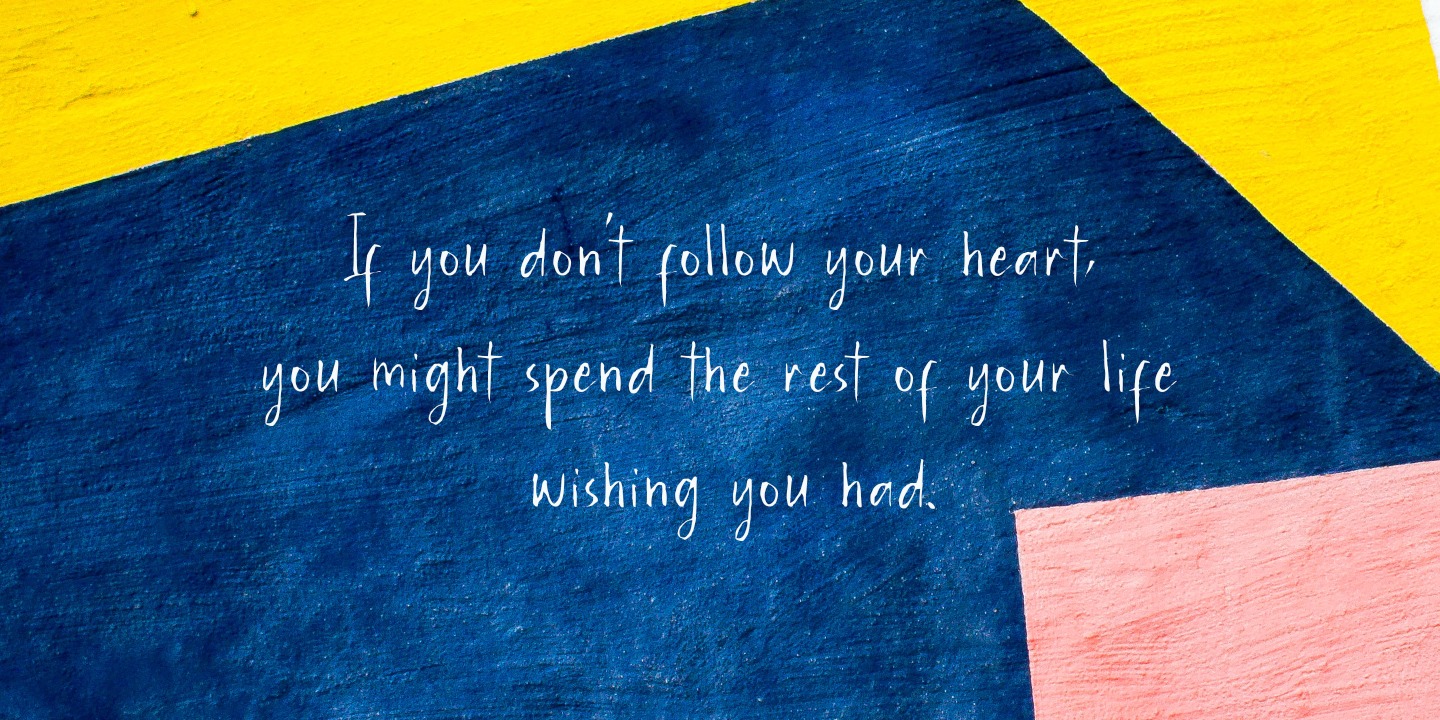 If you don't follow your heart,
you might spend the rest of your life
wishing you had.